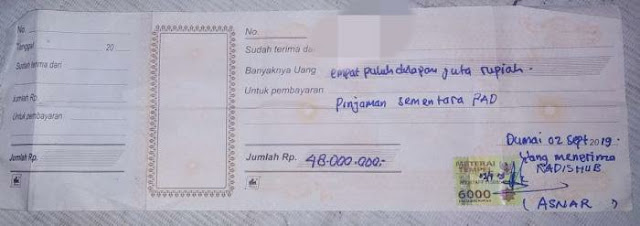 No.
Tanggal 20
Sudah terima dari
Jumlah Rp.
Untuk pembayaran
Jumlah Rp.
No.
Sudah terima da
Banyaknya Uang empat puluh delapan juta rupiah.
Untuk pembayaran
Pinjaman sementara PAD
Dumai 02 Sept 2019.
Yang menerima
KADISHUB
Jumlah Rp. 48.000.000,-
METERAI
TEMPEL
6000
( ASNAR )